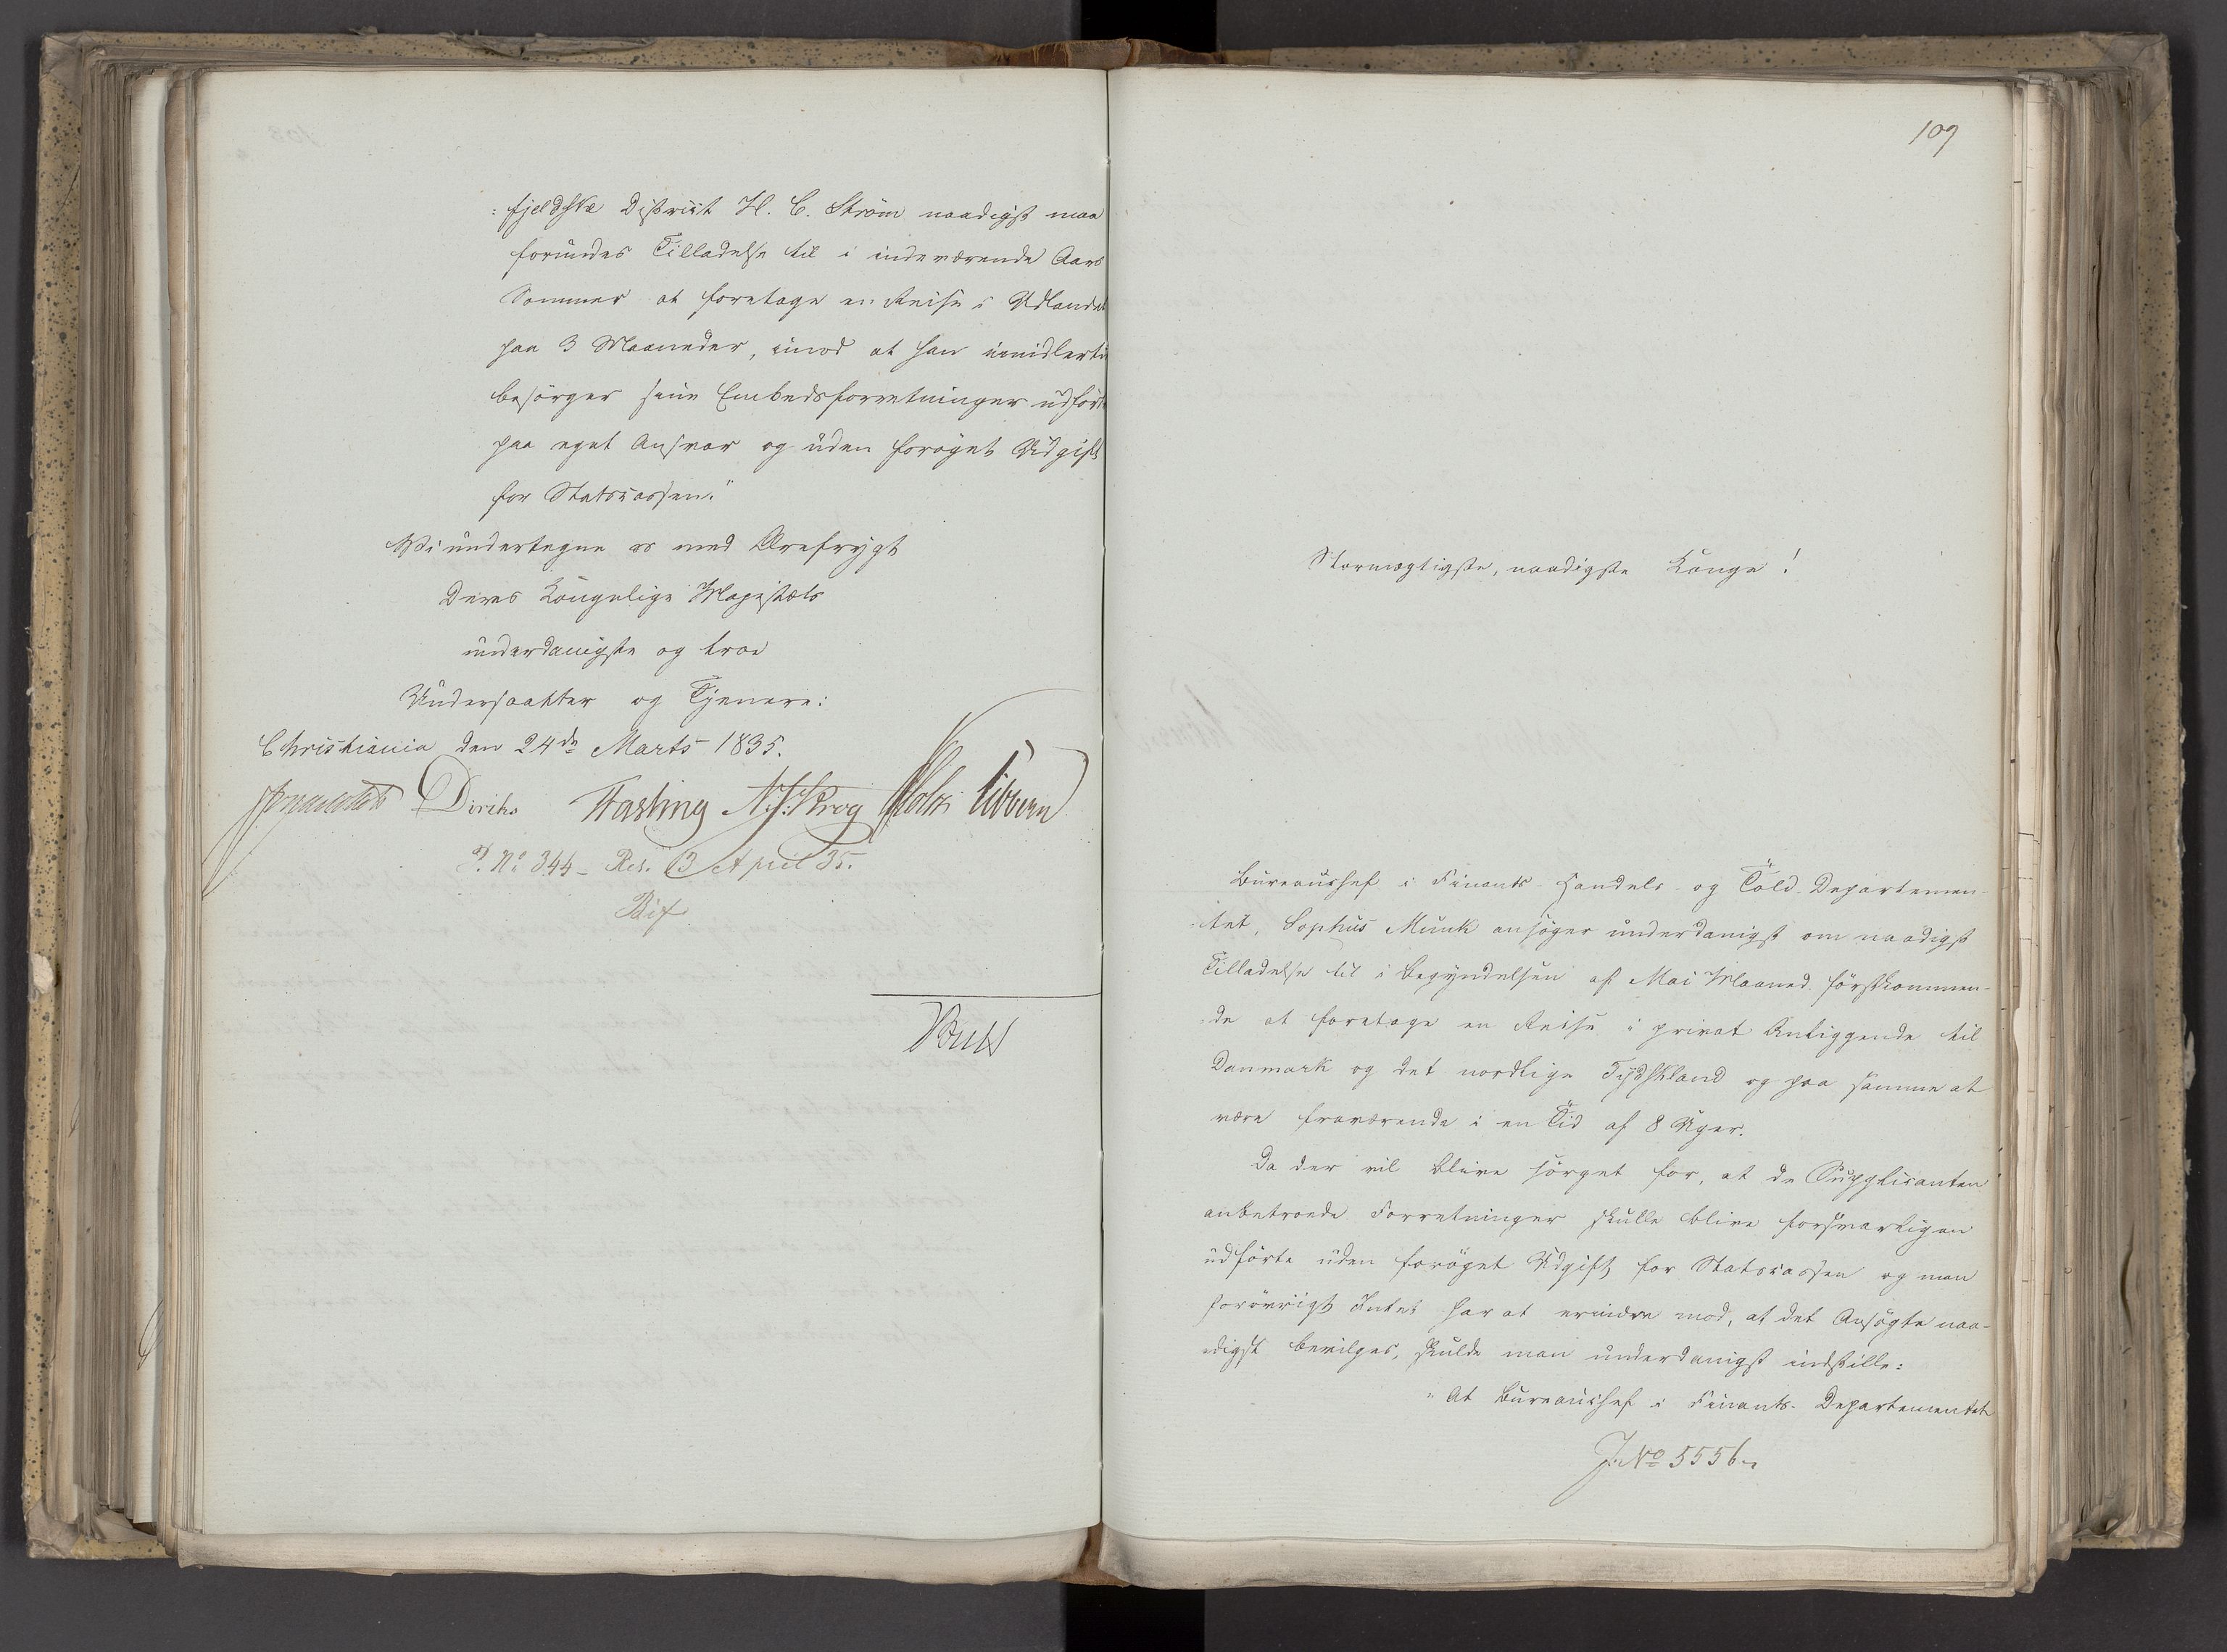 fjeldske District H. C. Strøm naadigst maa
forundes Tilladelse til i indeværende Aars
Sommer at foretage en Reise i Udlandet
paa 3 Maaneder, imod at han imidlerti
besørger sine Embedsforretninger udført
paa eget Ansvar og uden forøget Udgift
for Statscassen."
Vi undertegne os med Ærefrygt
Deres Kongelige Majestæts
underdanigste og troe
Undersaatter og Tjenere:
Christiania den 24de Marts 1835.
Diriks Fasting Krog Holst Sibbern
P. No 344 - Res. 13 April 35.
109
Stormægtigste, naadigste Konge!
Bureauchef i Finants- Handels- og Told-Departemen-
-tet, Sophus Munk ansøger underdanigst om naadigst
Tilladelse til i Begyndelsen af Mai Maaned førstkommen-
-de at foretage en Reise i privat Anliggende til
Danmark og det nordlige Tydskland og paa samme at
være fraværende i en Tid af 8 Uger.
Da der vil blive sørget for, at de Supplicanten
anbetroede Forretninger skulle blive forsvarligen
udførte uden forøget Udgift for Statscassen og man
forøvrigt Intet har at erindre mod, at det Ansøgte naa-
-digst bevilges, skulde man underdanigst indstille:
"At Bureauchef i Finants-Departementet
J. No 5556